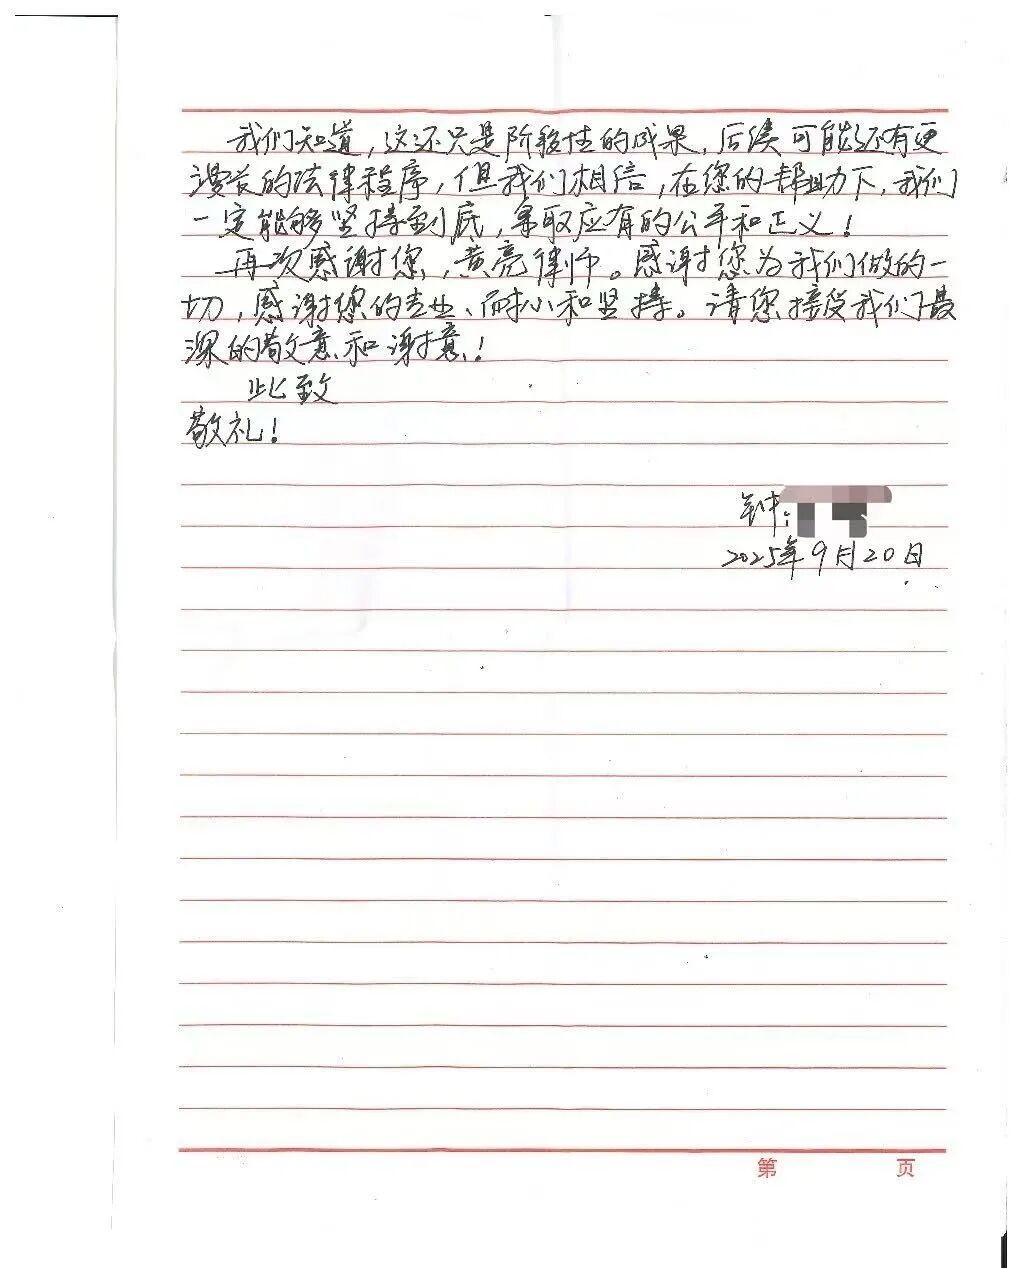 我们知道，这还只是阶段性的成果，后续可能还有更
漫长的法律程序，但我们相信，在您的帮助下，我们
一定能够坚持到底，争取应有的公平和正义！
再次感谢您，黄亮律师。感谢您为我们做的一
切，感谢您的专业、耐心和坚持。请您接受我们最
深的敬意和谢意！
此致
敬礼！
钟：
2025年9月20日
第 页